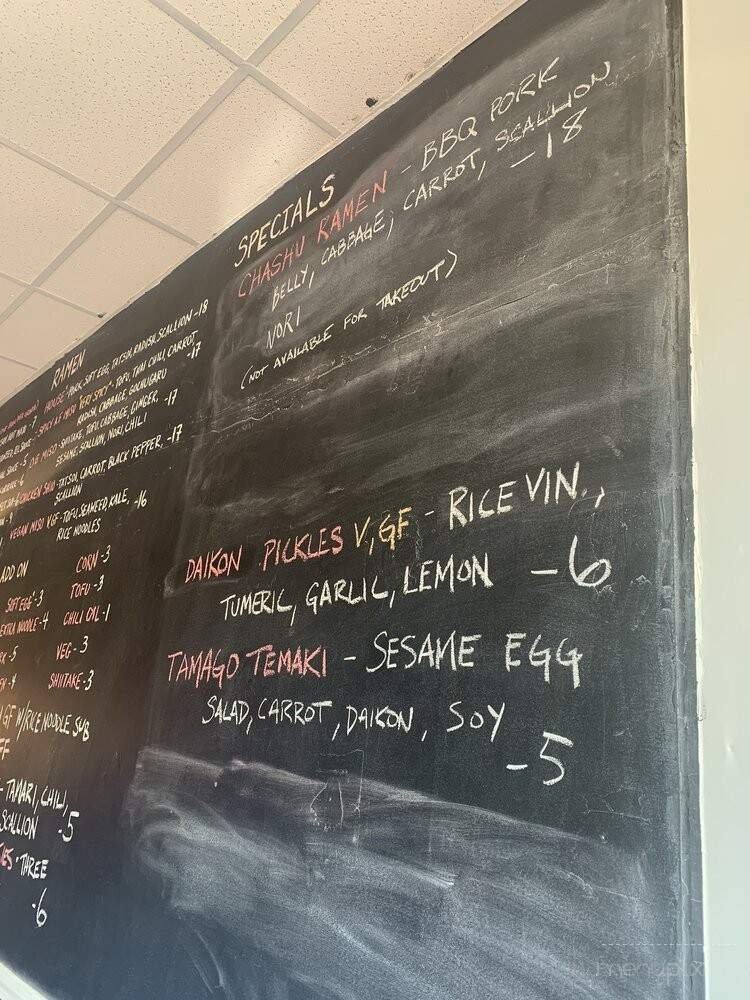 SPECIALS
CHASHU RAMEN - BBQ PORK
BELLY, CABBAGE, CARROT, SCALLION,
NORI - 18
(NOT AVAILABLE FOR TAKEOUT)
DAIKON PICKLES V, GF - RICE VIN.,
TUMERIC, GARLIC, LEMON - 6
TAMAGO TEMAKI - SESAME EGG
SALAD, CARROT, DAIKON, SOY
- 5
RAMEN
HOUSE - PORK, SOFT EGG, TATSOI, RADISH, SCALLION - 18
SPICY MISO "VERY SPICY" - TOFU, THAI CHILI, CARROT,
RADISH, CABBAGE, GOCHUGARU - 17
MISO - SHIITAKE, TOFU, CABBAGE, GINGER,
SESAME, SCALLION, NORI, CHILI - 17
CHICKEN SHIO - TATSOI, CARROT, BLACK PEPPER,
SCALLION - 17
VEGAN MISO VGF - TOFU, SEAWEED, KALE,
RICE NOODLES - 16
ADD ON
CORN - 3
SOFT EGG - 3
TOFU - 3
EXTRA NOODLE - 4
CHILI OIL - 1
- 5
VEG - 3
- 4
SHIITAKE - 3
GF W/RICE NOODLE SUB
- TAMARI, CHILI,
SCALLION - 5
- THREE
- 6